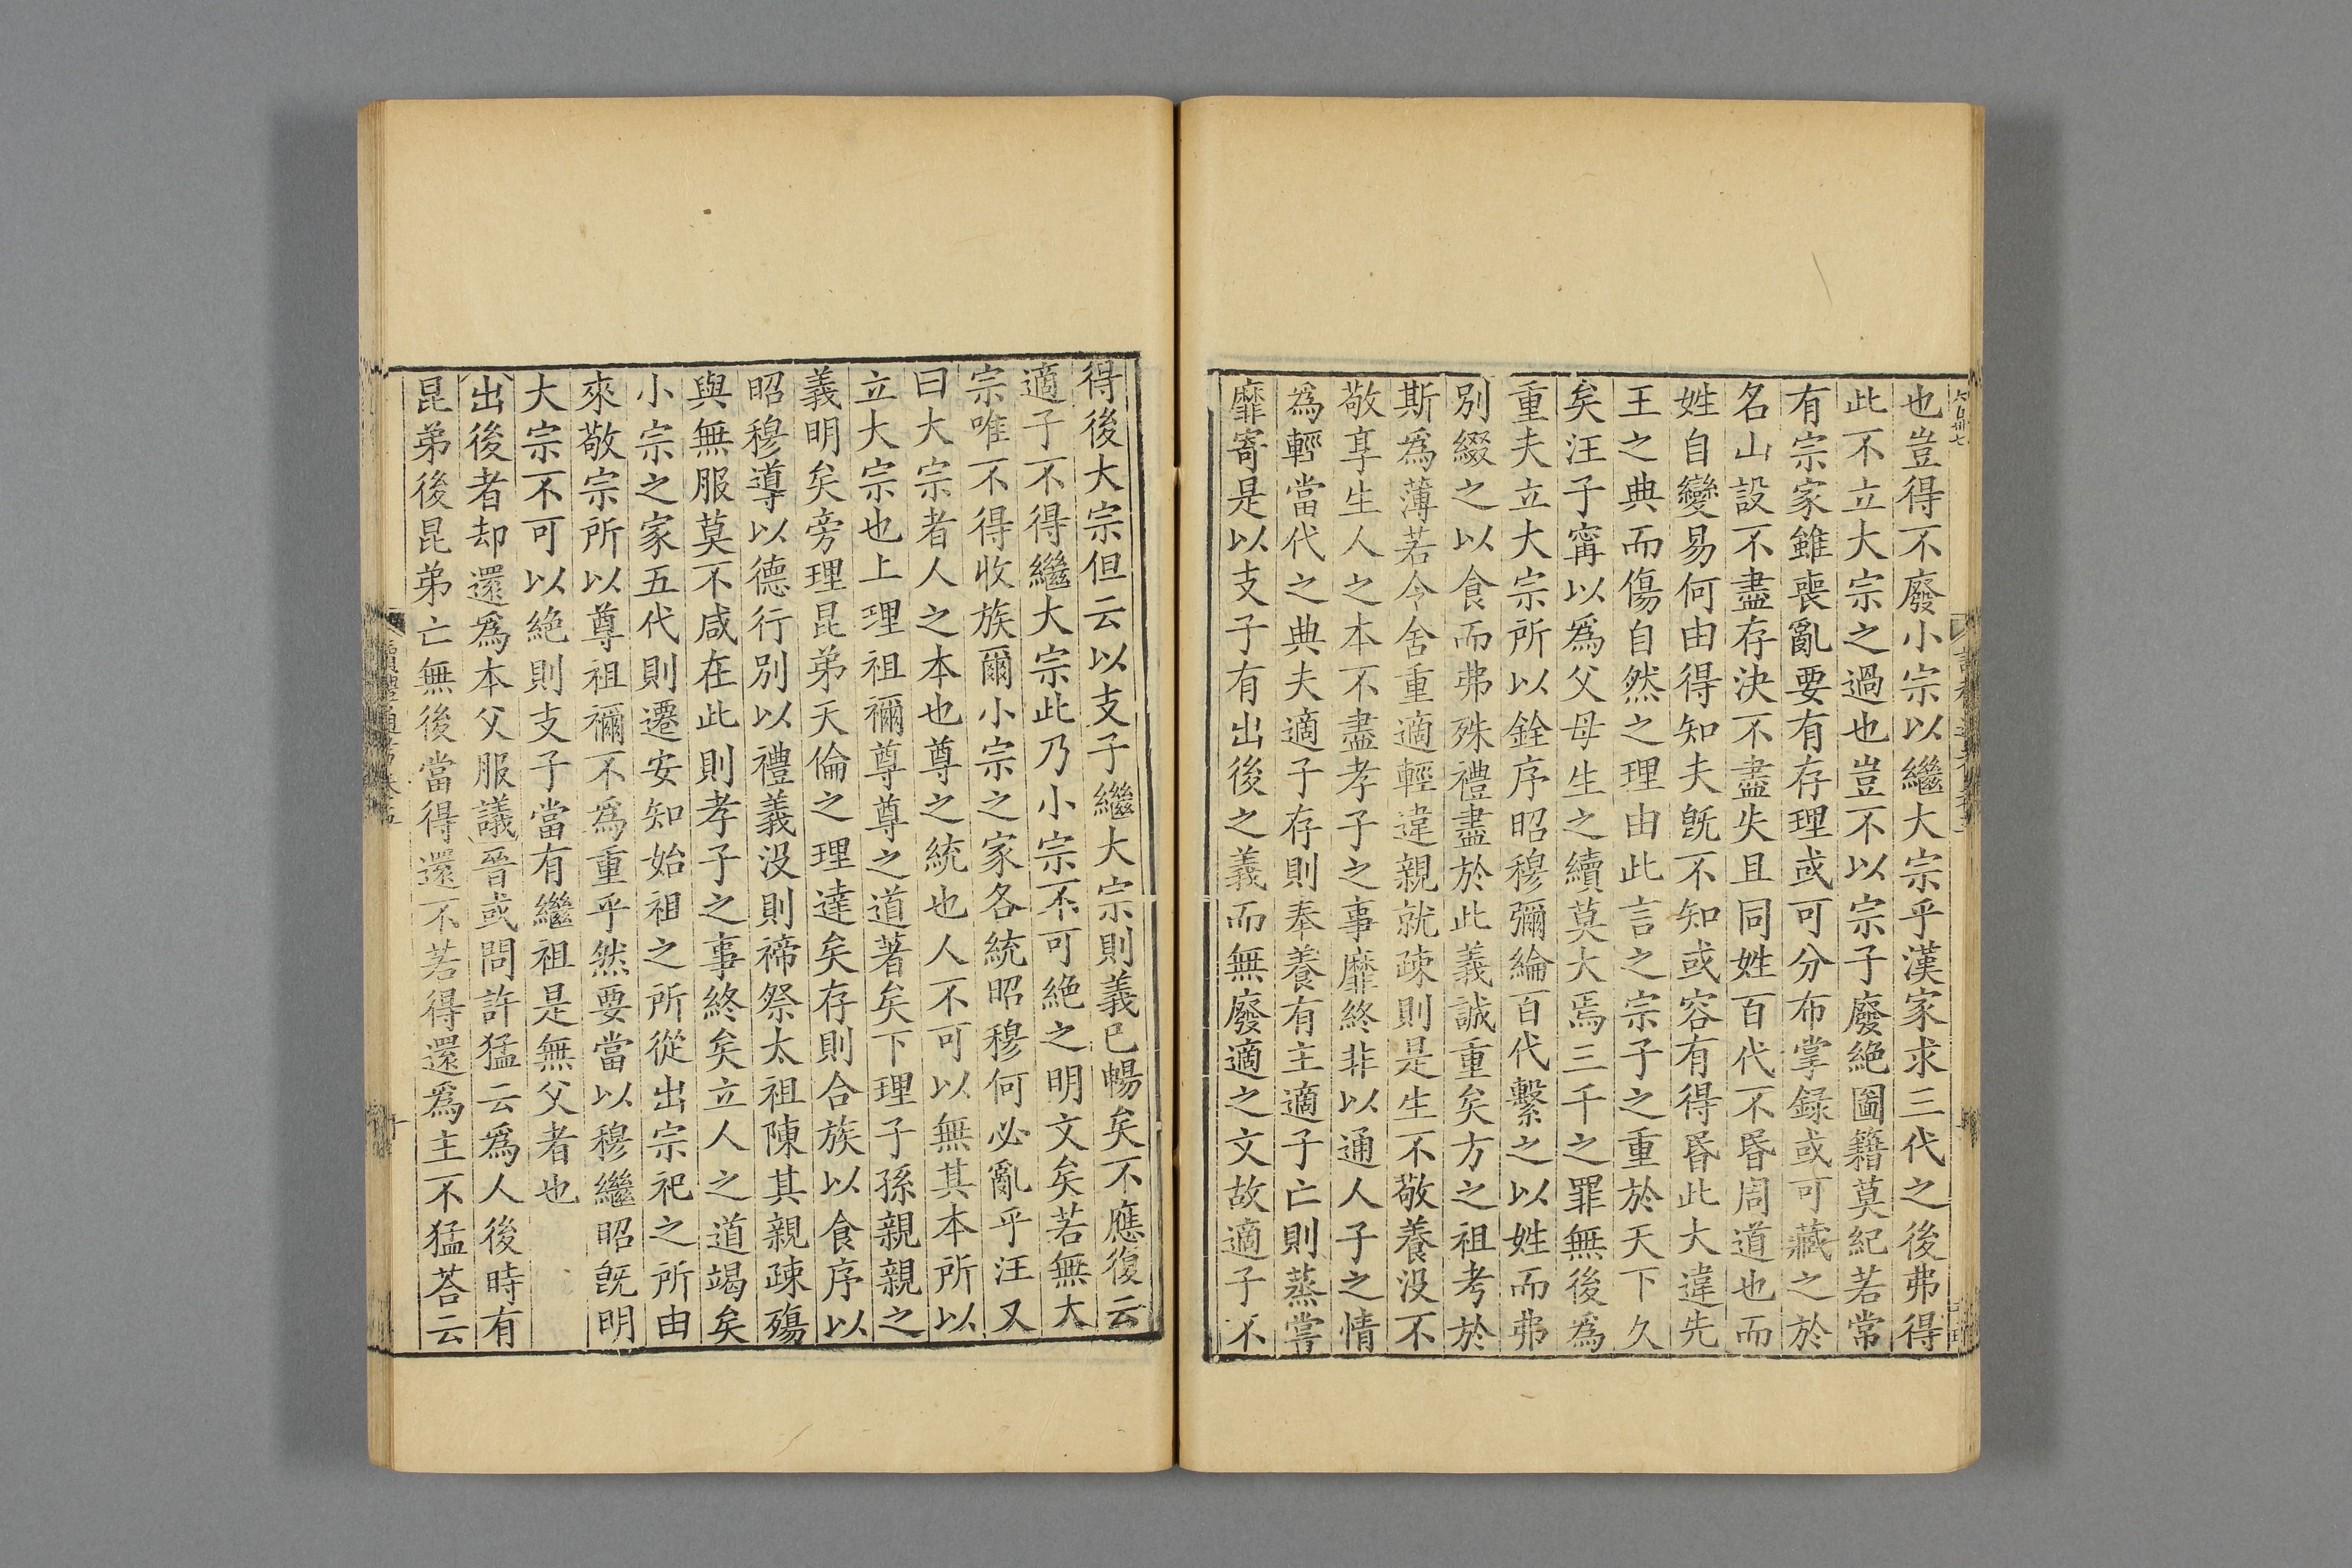 六百卅七
也豈得不廢小宗以繼大宗乎漢家求三代之後弗得
此不立大宗之過也豈不以宗子廢絶圖籍莫紀若常
有宗家雖喪亂要有存理或可分布掌録或可藏之於
名山設不盡存決不盡失且同姓百代不昬周道也而
姓自變易何由得知夫旣不知或容有得昬此大違先
王之典而傷自然之理由此言之宗子之重於天下久
矣汪子甯以爲父母生之續莫大焉三千之罪無後爲
重夫立大宗所以銓序昭穆彌綸百代繫之以姓而弗
別綴之以食而弗殊禮盡於此義誠重矣方之祖考於
斯爲薄若令舍重適輕違親就疎則是生不敬養没不
敬享生人之本不盡孝子之事靡終非以通人子之情
爲輕當代之典夫適子存則奉養有主適子亡則蒸嘗
靡寄是以支子有出後之義而無廢適之文故適子不
得後大宗但云以支子繼大宗則義已暢矣不應復云
適子不得繼大宗此乃小宗不可絶之明文矣若無大
宗唯不得收族爾小宗之家各統昭穆何必亂乎汪又
曰大宗者人之本也尊之統也人不可以無其本所以
立大宗也上理祖禰尊尊之道著矣下理子孫親親之
義明矣旁理昆弟天倫之理達矣存則合族以食序以
昭穆導以德行別以禮義没則禘祭太祖陳其親疎殤
與無服莫不咸在此則孝子之事終矣立人之道竭矣
小宗之家五代則遷安知始祖之所從出宗祀之所由
來敬宗所以尊祖禰不爲重乎然要當以穆繼昭旣明
大宗不可以絶則支子當有繼祖是無父者也
出後者却還爲本父服議晉或問許猛云爲人後時有
昆弟後昆弟亡無後當得還不若得還爲主不猛荅云